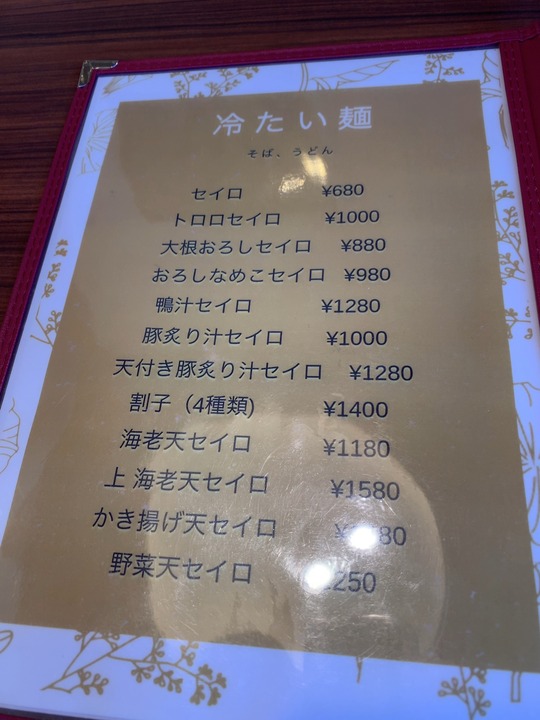 冷たい麺
そば、うどん
セイロ ¥680
トロロセイロ ¥1000
大根おろしセイロ ¥880
おろしなめこセイロ ¥980
鴨汁セイロ ¥1280
豚炙り汁セイロ ¥1000
天付き豚炙り汁セイロ ¥1280
割子（4種類) ¥1400
海老天セイロ ¥1180
上 海老天セイロ ¥1580
かき揚げ天セイロ
野菜天セイロ